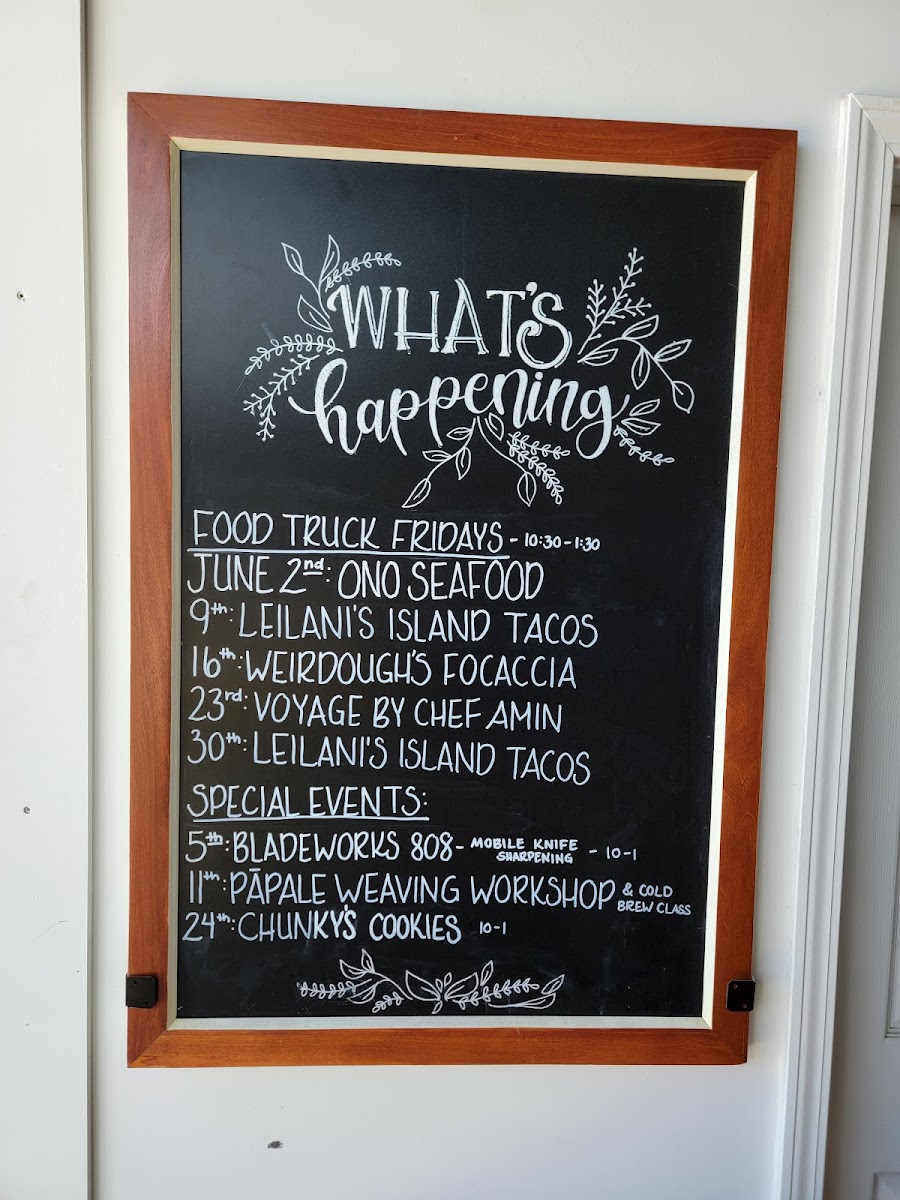 WHAT'S
happening
FOOD TRUCK FRIDAYS - 10:30-1:30
JUNE 2nd: ONO SEAFOOD
9th: LEILANI'S ISLAND TACOS
16th: WEIRDOUGH'S FOCACCIA
23rd: VOYAGE BY CHEF AMIN
30th: LEILANI'S ISLAND TACOS
SPECIAL EVENTS:
5th: BLADEWORKS 808 - MOBILE KNIFE SHARPENING - 10-1
11th: PĀPALE WEAVING WORKSHOP & COLD BREW CLASS
24th: CHUNKY'S COOKIES 10-1